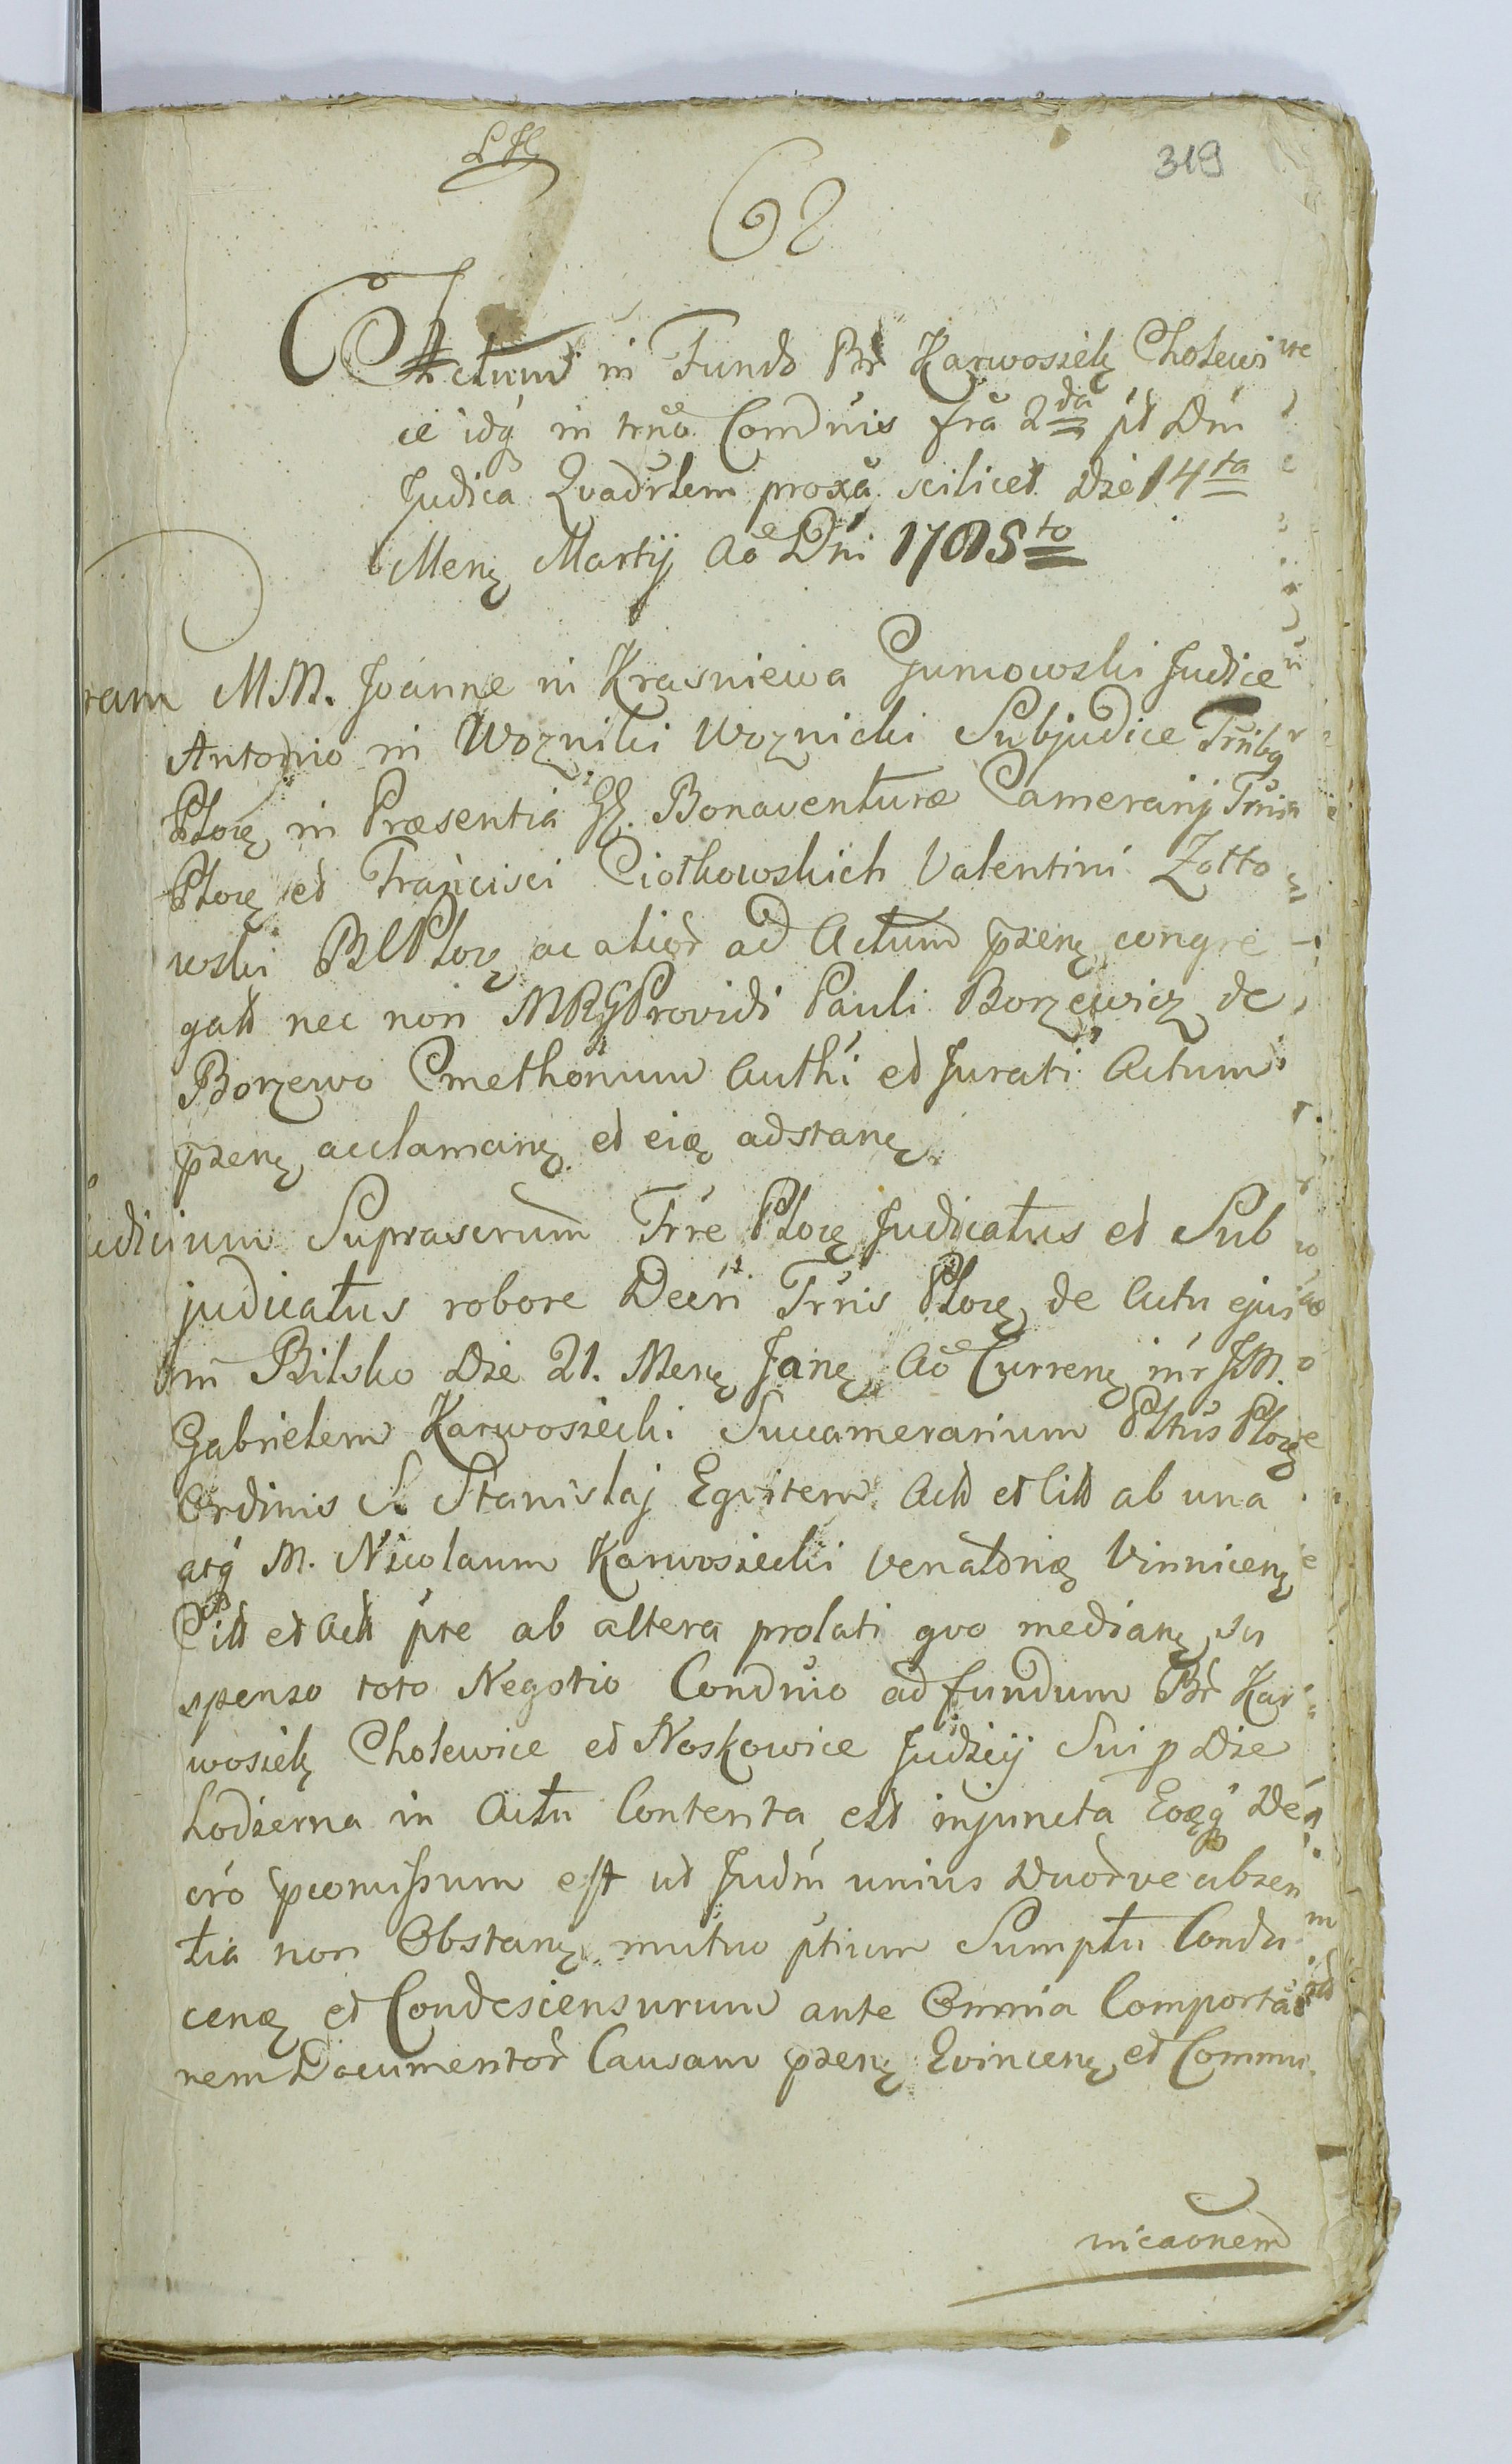 319
68
Actum in Fundo Br Karwosiek Cholewi
ce idq in trno Condnis fra 2da pt Dm
Judica Quadrlem proxa scilicet Die 14ta
Men Martij Ao Dni 1785to
ram MM. Joanne in Krasniewa Gumowski Judice
Antonio in Wozniki Woznicki Subjudice Trribq
Ploc in Præsentia GG. Bonaventuræ Camerarij Trris
Ploc et Francisci Ciołkowskich Valentini Zotto
wski BCPloc ac alior ad Actum przen congre
gatt nec non MRGProvidi Pauli Borzewicz de
Borzewo Cmethonum Authi et Jurati Actum
przen acclaman et eiq adstan
udicium Suprascrum Trre Ploc Judicatus et Sub
judicatus robore Decri Trris Ploc de Actu ejus
m Bilsko Die 21. Men Jan Ao Curren inr JM.
Gabrielem Karwosiecki Succamerarium Pltus Ploc
Ordinis S. Stanislaj Equitem Actt et Citt ab una
atq M. Nicolaum Karwosiecki Venatorie Vinnicen
Citt et Actt pte ab altera prolati quo median su
spenso toto Negotio Condnio ad fundum Br Kar
wosiek Cholewice et Noskowice Judicij Sui p Die
hodierna in Actu Contenta est injuncta Eoqq De
cro promissum est ut Judm unius Duorve absen
tia non Obstan mutuo ptium Sumptu Condu
cen et Condescensurum ante Omnia Comporta
nem Documentor Causam przen Evincen et Commu
nicaonem